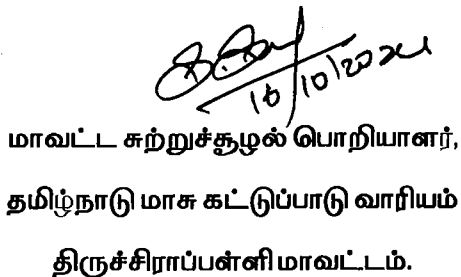 16/10/2024
மாவட்ட சுற்றுச்சூழல் பொறியாளர்,
தமிழ்நாடு மாசு கட்டுப்பாடு வாரியம்
திருச்சிராப்பள்ளி மாவட்டம்.